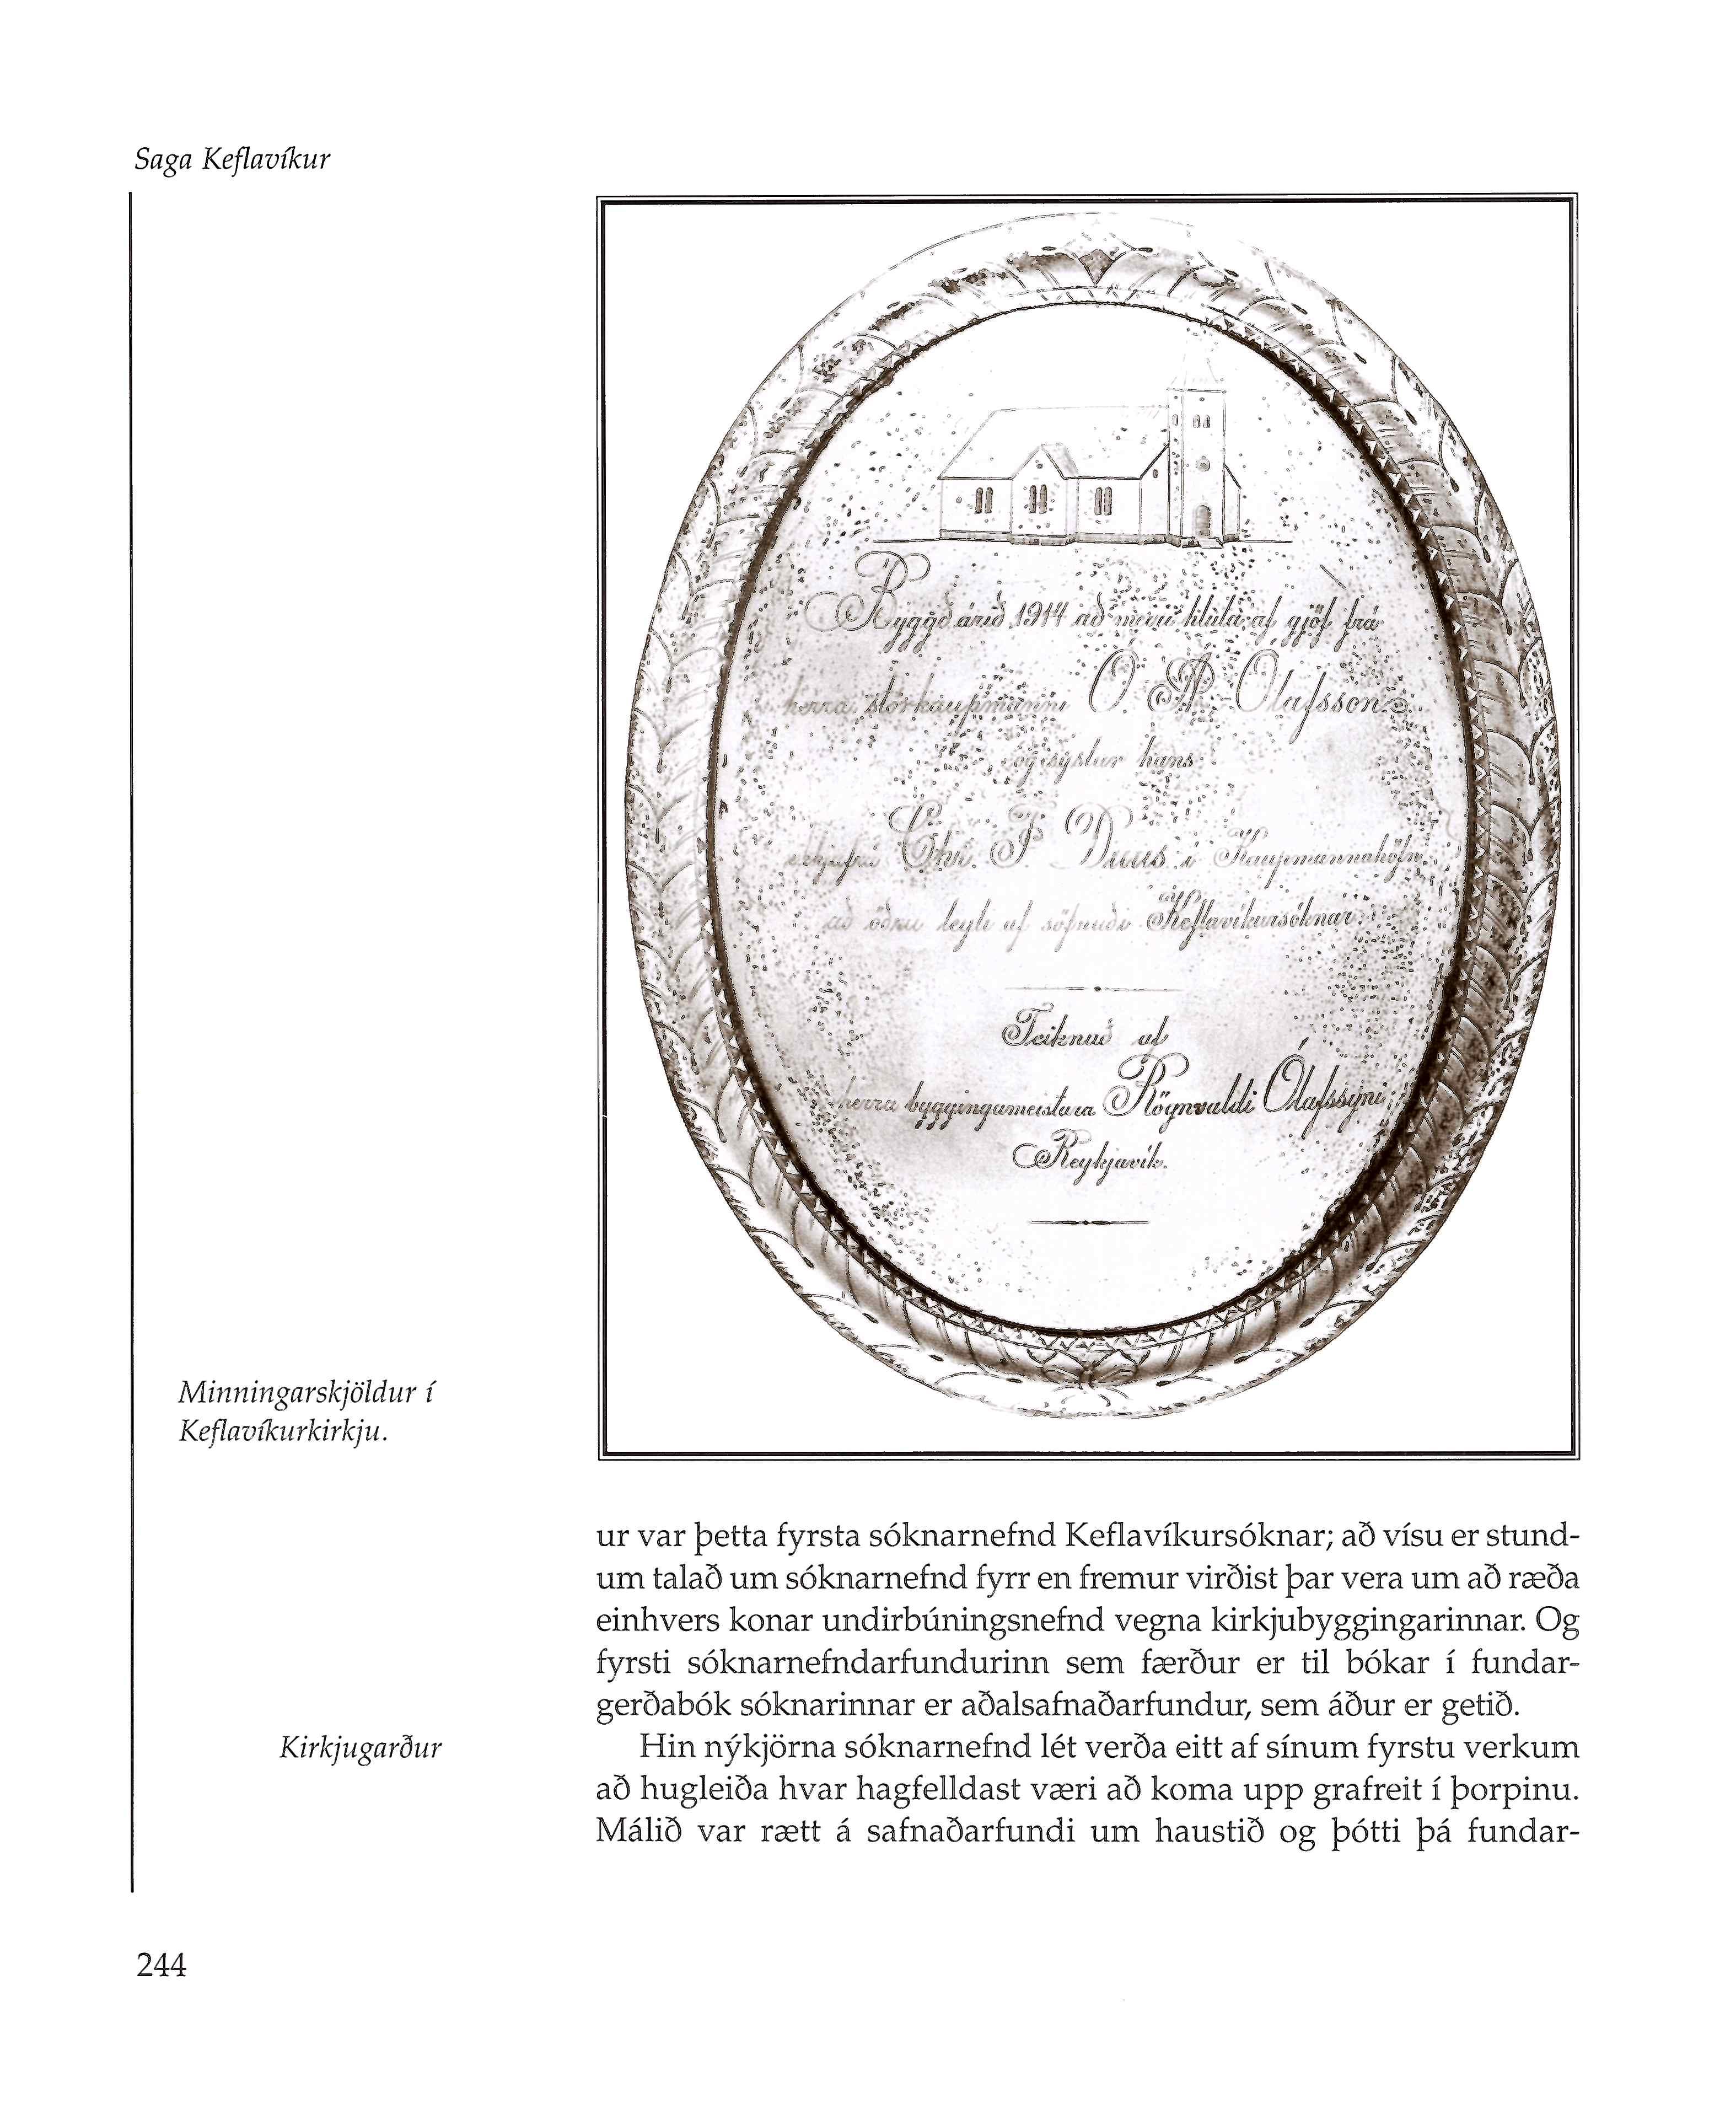 Saga Keflavíkur
Byggð árið 1914 að meiri hluta af gjöf frá
herra stórkaupmanni Ó. A. Ólafsson
og systur hans
ekkjufrú Chr. J. Duus í Kaupmannahöfn,
að öðru leyti af söfnuði Keflavíkursóknar.
Teiknuð af
herra byggingameistara Rögnvaldi Ólafssyni
Reykjavík.
Minningarskjöldur í
Keflavíkurkirkju.
ur var þetta fyrsta sóknarnefnd Keflavíkursóknar; að vísu er stund-
um talað um sóknarnefnd fyrr en fremur virðist þar vera um að ræða
einhvers konar undirbúningsnefnd vegna kirkjubyggingarinnar. Og
fyrsti sóknarnefndarfundurinn sem færður er til bókar í fundar-
gerðabók sóknarinnar er aðalsafnaðarfundur, sem áður er getið.
Kirkjugarður
Hin nýkjörna sóknarnefnd lét verða eitt af sínum fyrstu verkum
að hugleiða hvar hagfelldast væri að koma upp grafreit í þorpinu.
Málið var rætt á safnaðarfundi um haustið og þótti þá fundar-
244